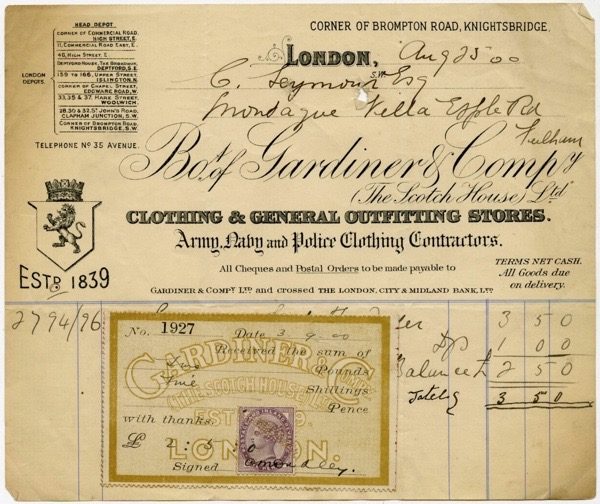 CORNER OF BROMPTON ROAD, KNIGHTSBRIDGE,
HEAD DEPOT
CORNER OF COMMERCIAL ROAD
HIGH STREET, E.
11, COMMERCIAL ROAD EAST, E.
46, HIGH STREET, E.
DEPTFORD HOUSE, THE BROADWAY,
DEPTFORD, S.E.
159 TO 166, UPPER STREET,
ISLINGTON, N.
CORNER OF CHAPEL STREET,
EDGWARE ROAD, W.
33, 35 & 37, HARE STREET,
WOOLWICH.
28, 30 & 32, ST JOHN'S ROAD,
CLAPHAM JUNCTION, S.W.
CORNER OF BROMPTON ROAD,
KNIGHTSBRIDGE, S.W.
LONDON DEPOTS.
TELEPHONE No 35 AVENUE.
LONDON, S.W. Aug 25 00
C. Seymour Esq
Montague Villa Rd
Fulham
Bot. of Gardiner & Compy
(The Scotch House) Ltd
CLOTHING & GENERAL OUTFITTING STORES.
Army, Navy and Police Clothing Contractors.
ESTD 1839
All Cheques and Postal Orders to be made payable to
GARDINER & COMPY LTD and crossed THE LONDON, CITY & MIDLAND BANK, LTD
TERMS NET CASH.
All Goods due
on delivery.
2794/96
3 5 0
1 0 0
Balance £ 2 5 0
3 5 0
No. 1927
Date 3 9 00
Received the sum of
Two Pounds
Five Shillings
Pence
with thanks.
£ 2 : 5 0
Signed
GARDINER & Co
(THE SCOTCH HOUSE)
LONDON.